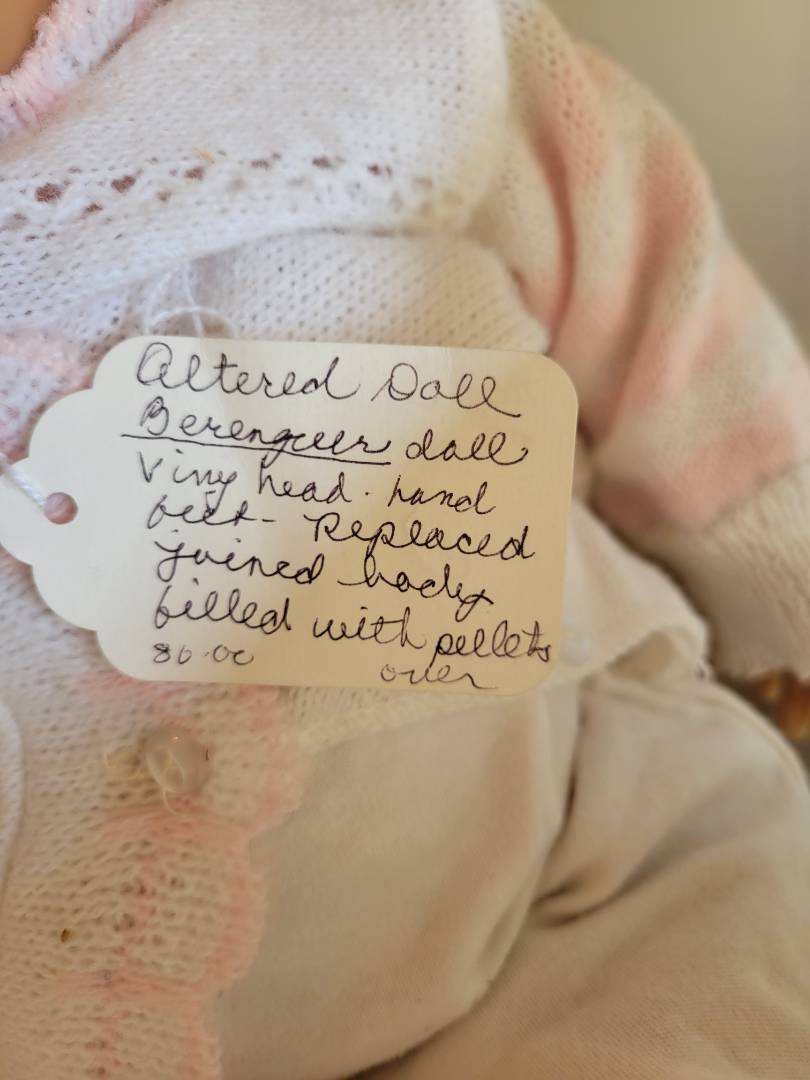 Altered Doll
Berenguer doll
Viny head. hand
feet- Replaced
joined body
filled with pellets
80.00 over